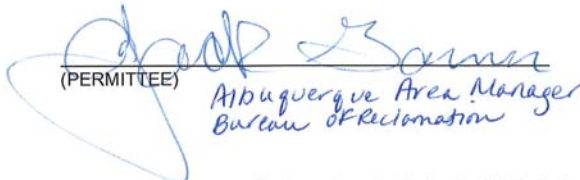 Jack
(PERMITTEE)
Albuquerque Area Manager
Bureau of Reclamation